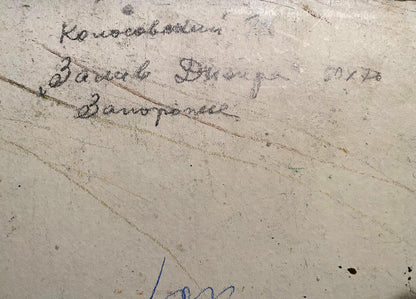 Колосовский
„Залив Днепра" 50х70
Запорожье